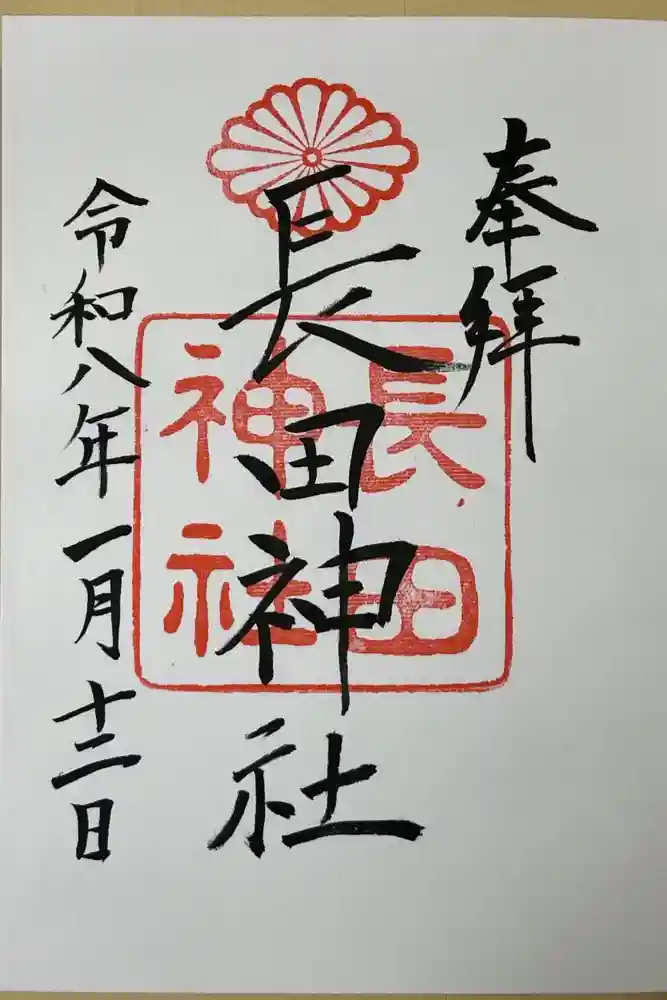 奉拝
長田神社
長田
神社
令和八年一月十二日